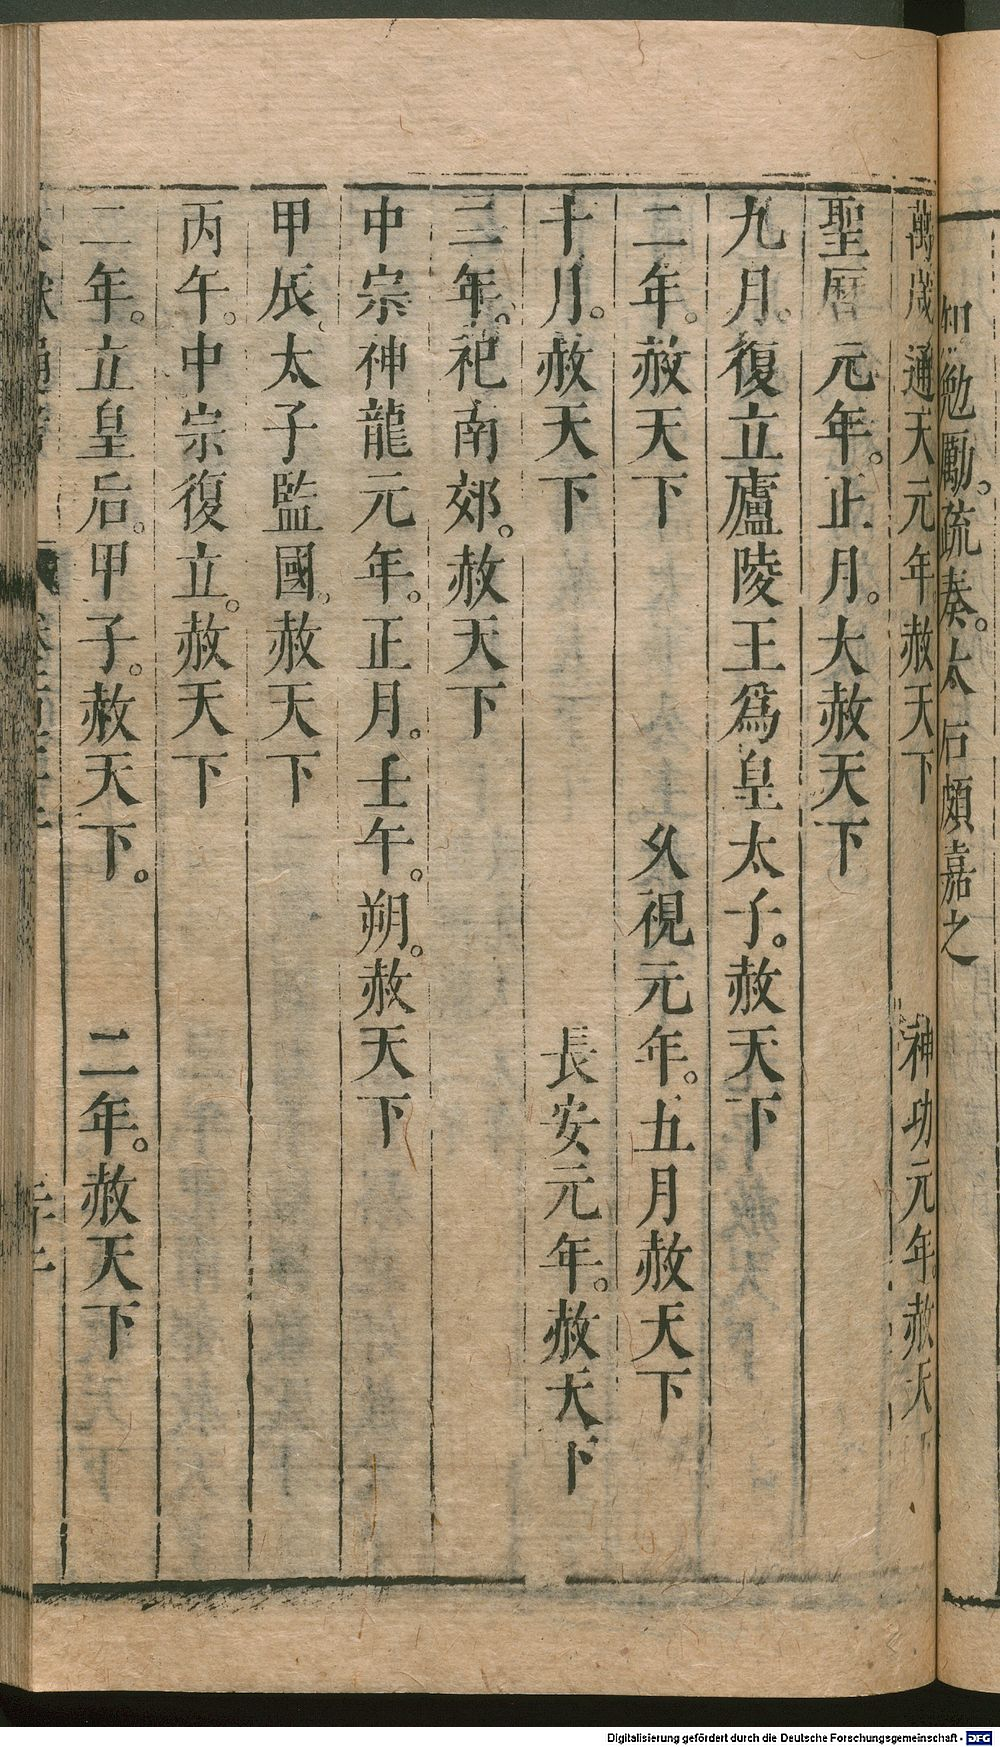 勉勵。疏奏。太后頗嘉之
萬歲通天元年赦天下　神功元年。赦天下
聖曆元年。正月。大赦天下
九月。復立廬陵王爲皇太子。赦天下
二年。赦天下　久視元年。五月赦天下
十月。赦天下　長安元年。赦天下
三年。祀南郊。赦天下
中宗神龍元年。正月。壬午。朔。赦天下
甲辰。太子監國。赦天下
丙午。中宗復立。赦天下
二年。立皇后。甲子。赦天下。　二年。赦天下
Digitalisierung gefördert durch die Deutsche Forschungsgemeinschaft - DFG